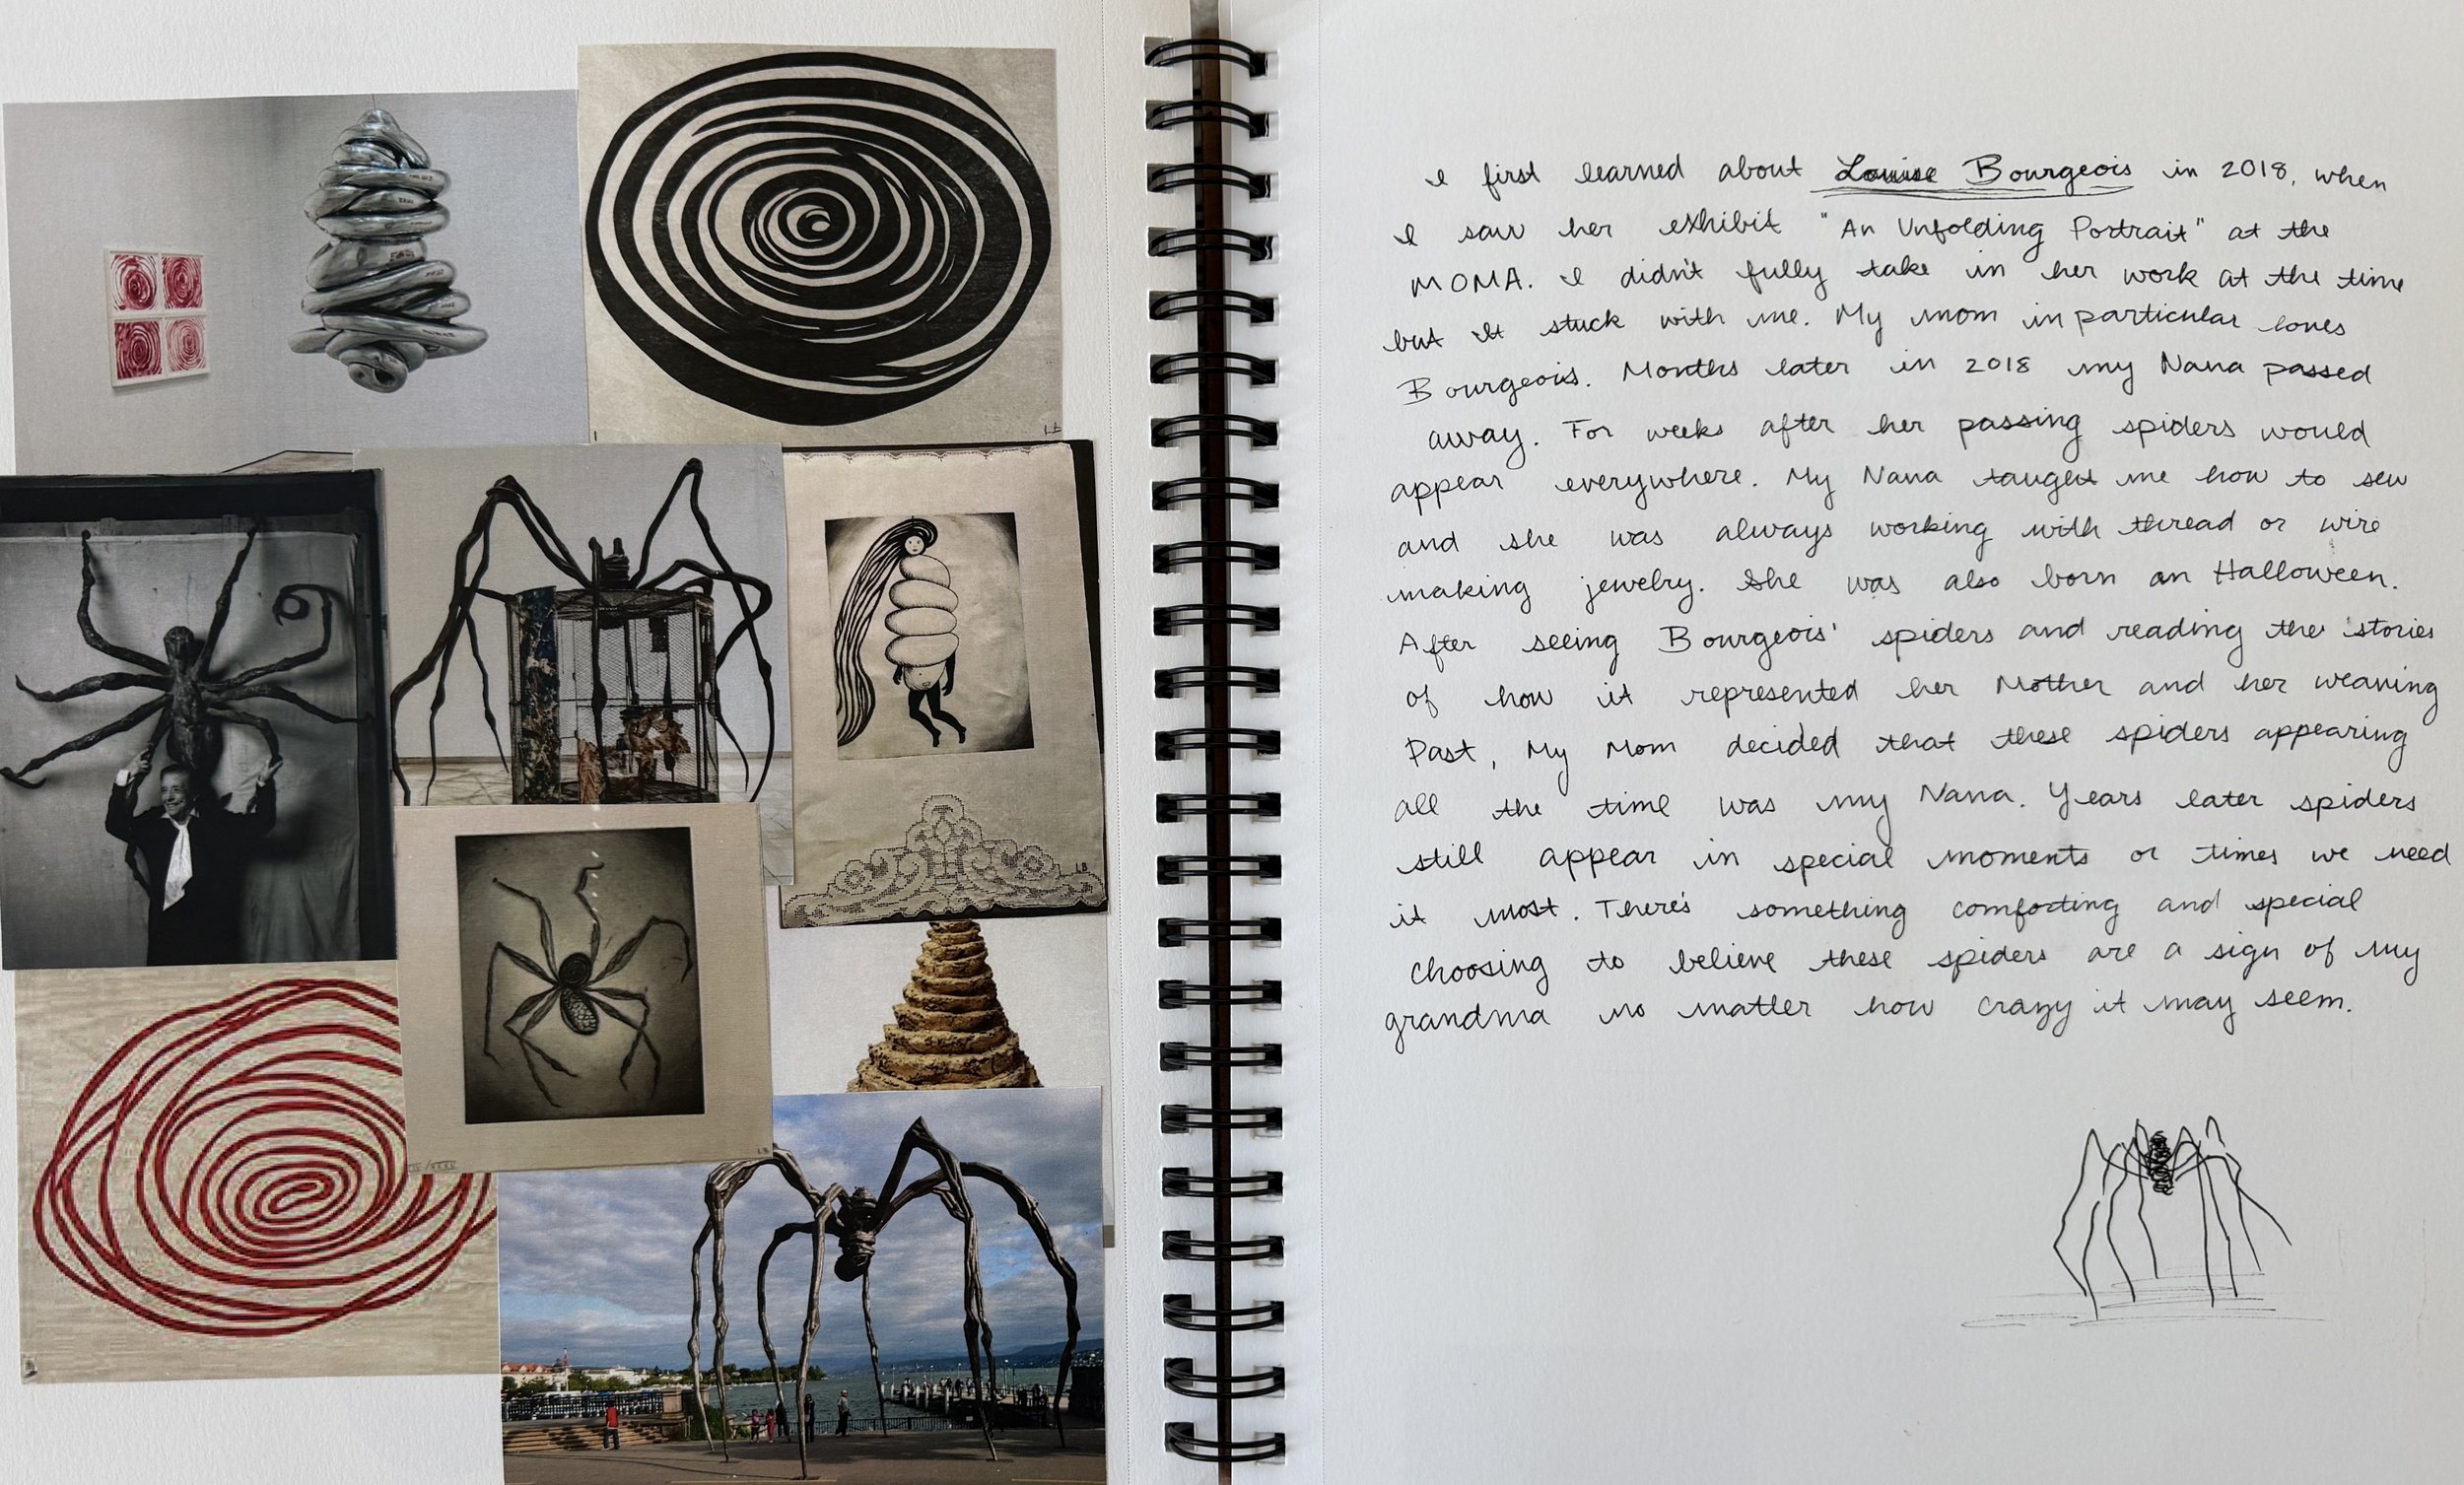 I first learned about Louise Bourgeois in 2018, when
I saw her exhibit "An Unfolding Portrait" at the
MOMA. I didn't fully take in her work at the time
but it stuck with me. My mom in particular loves
Bourgeois. Months later in 2018 my Nana passed
away. For weeks after her passing spiders would
appear everywhere. My Nana taught me how to sew
and she was always working with thread or wire
making jewelry. She was also born on Halloween.
After seeing Bourgeois' spiders and reading the stories
of how it represented her Mother and her weaving
Past, My Mom decided that these spiders appearing
all the time was my Nana. Years later spiders
still appear in special moments or times we need
it most. There's something comforting and special
choosing to believe these spiders are a sign of my
grandma no matter how crazy it may seem.
LB
LB
LB